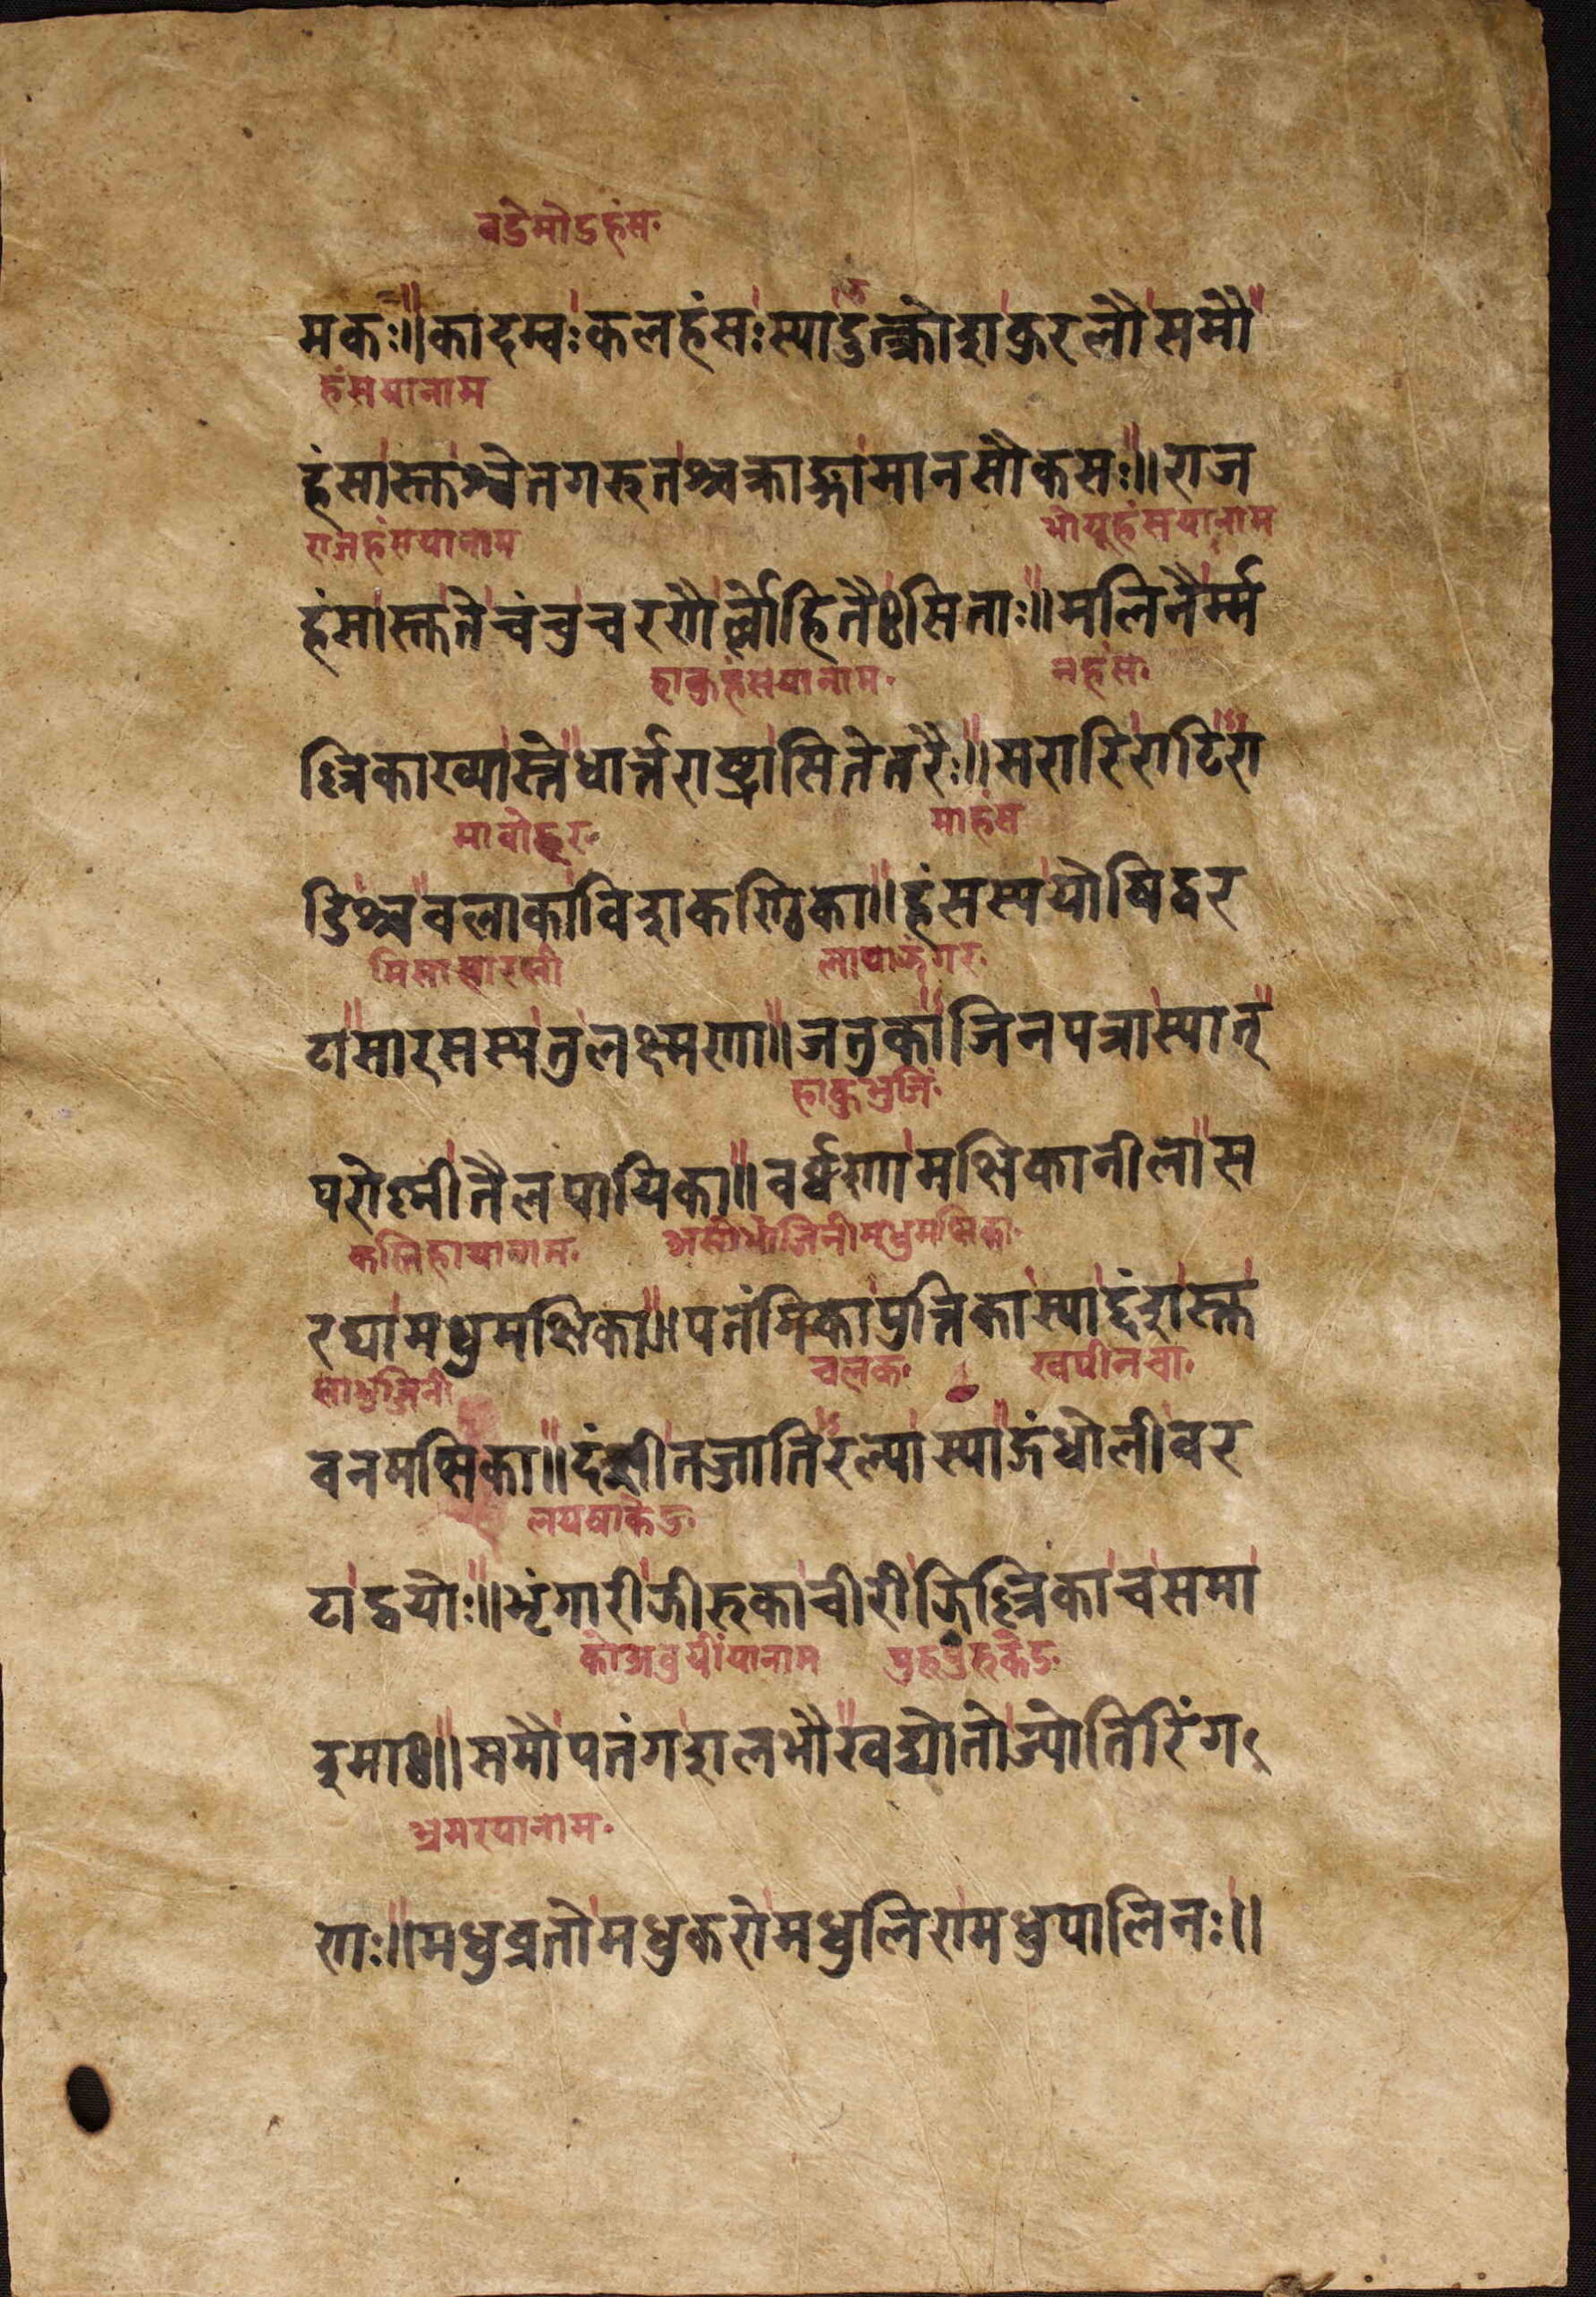 वडेमोडहंस.
मकः॥कादम्वःकलहंसःस्यादुत्क्रोशकुररलौसमौ
हंसयानाम
हंसास्तश्चेतगरुतश्चक्राङ्गामानसौकसः॥राज
राजहंसयानाम भोयूहंसयानाम
हंसास्ततेचंचुचरणैर्ल्लोहितैःसिताः॥मलिनैर्म्म
हाकुहंसयानाम. नहंस.
ल्लिकाख्यास्तेधार्त्तराष्ट्रासितेतरैः॥सरारिराटिरा
मावोहर. माहंस
डिश्चवलाकाविशकण्ठिका॥हंसस्ययोषिद्वर
मिसासारसी
टासारसस्यतुलक्ष्मणा॥जतुकाजिनपत्रास्यात्
हाकुभुजिं.
परोष्नीतैलपायिका॥वर्व्वणामक्षिकानीलास
रघामधुमक्षिका॥पतंगिकापुत्तिकास्याद्दंशस्त
चलक.
वनमक्षिका॥दंशीतज्जातिरल्पास्याद्गंधोलीवर
टाद्वयोः॥भृंगारीझीरुकाचीरीझिल्लिकाचसमा
इमाः॥समौपतंगशलभौखद्योतोज्योतिरिंग
भ्रमरयानाम.
णः॥मधुव्रतोमधुकरोमधुलिरामधुपालिनः॥